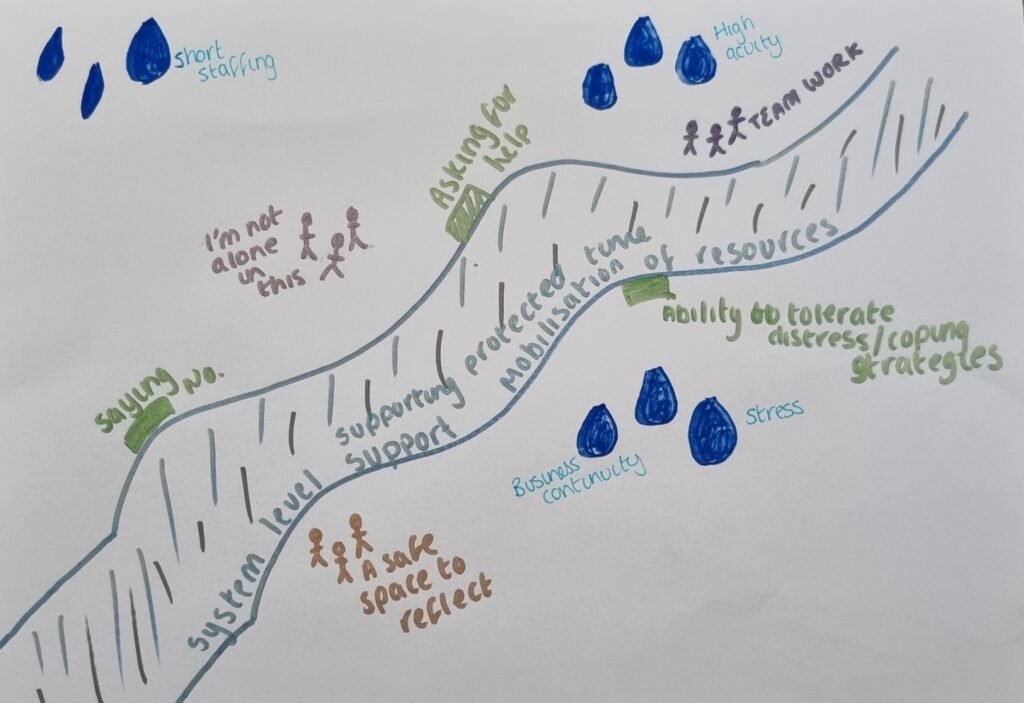 short
staffing
High
acuity
TEAM WORK
Asking for
help
I'm not
alone
in
this
Saying No.
supporting protected time
Mobilisation of resources
system level support
Ability to tolerate
distress/coping
strategies
Stress
Business
continuity
A safe
space to
reflect